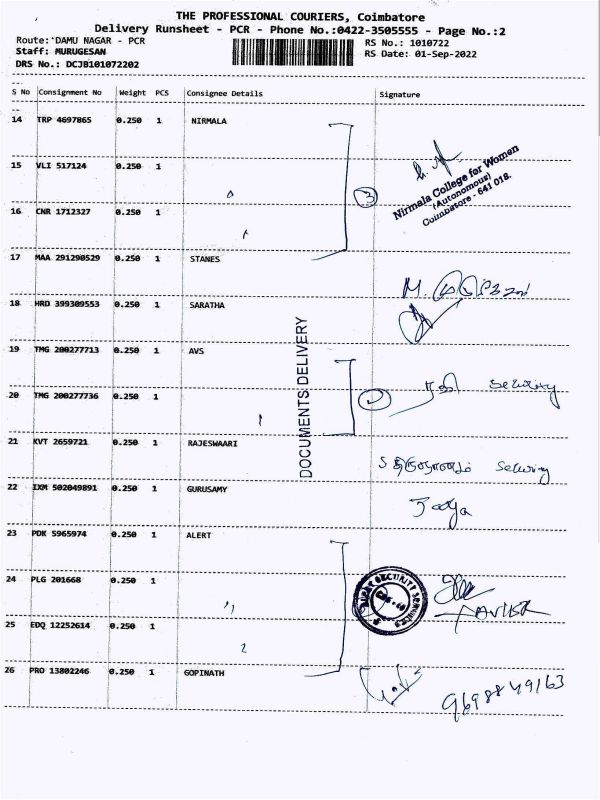 THE PROFESSIONAL COURIERS, Coimbatore
Delivery Runsheet - PCR - Phone No.:0422-3505555 - Page No.:2
Route: DAMU NAGAR - PCR
RS No.: 1010722
Staff: MURUGESAN
RS Date: 01-Sep-2022
DRS No.: DCJB101072202
S No Consignment No Weight PCS Consignee Details Signature
14 TRP 4697865 0.250 1 NIRMALA
15 VLI 517124 0.250 1
Nirmala College for Women
(Autonomous)
Coimbatore - 641 018.
3
16 CNR 1712327 0.250 1
17 MAA 291290529 0.250 1 STANES
18 HRD 399309553 0.250 1 SARATHA
DOCUMENTS DELIVERY
19 TMG 200277713 0.250 1 AVS
20 TMG 200277736 0.250 1
21 KVT 2659721 0.250 1 RAJESWAARI
22 IXM 502049891 0.250 1 GURUSAMY
23 PDK 5965974 0.250 1 ALERT
24 PLG 201668 0.250 1
25 EDQ 12252614 0.250 1
26 PRO 13802246 0.250 1 GOPINATH
9698849163